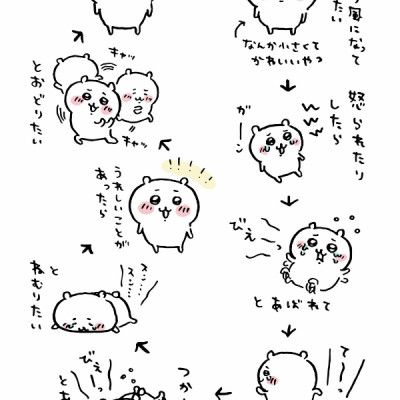 風になって
たい
なんか小さくて
かわいいやつ
怒られたり
したら
ガーン
びえーっ
とあばれて
てっ
つか
びえーっ
とあ
と
ねむりたい
スン…
スン…
うれしいことが
あったら
!!!!!
キャッ
キャッ
とおどりたい